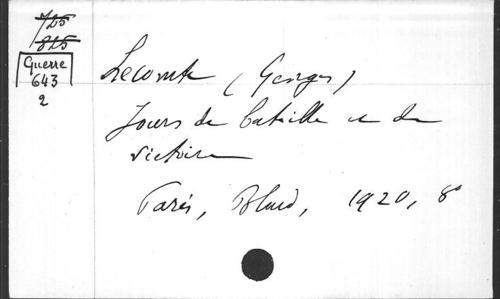 725
825
Guerre
643
2
Lecomte (Georges)
Jours de bataille et de
victoire
Paris, Bloud, 1920, 8°